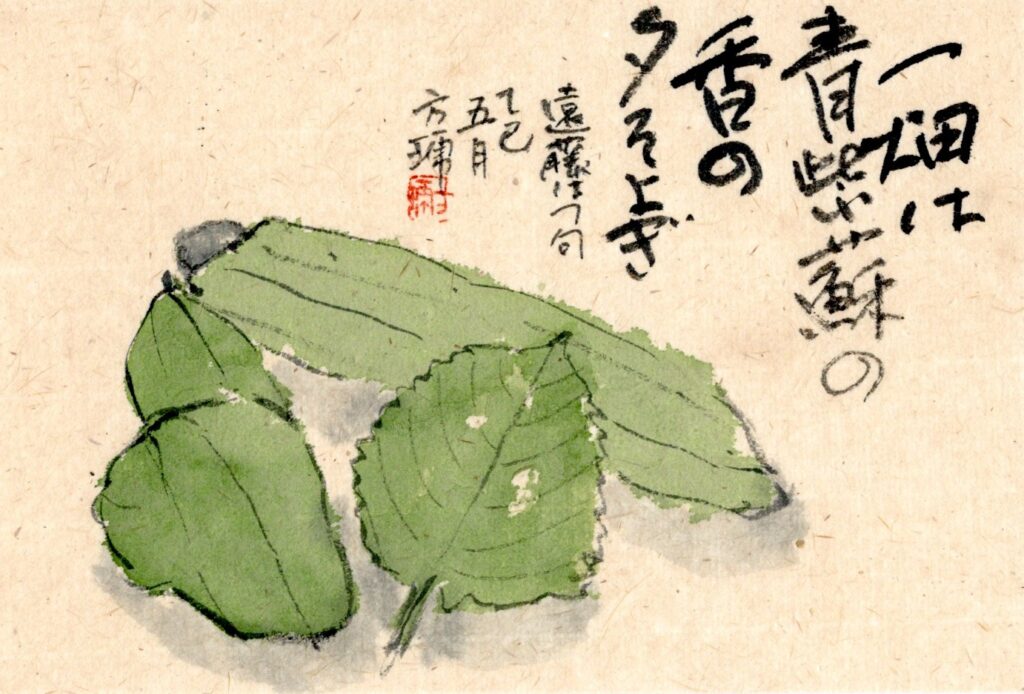 一畑は
青紫蘇の
香の
夕そよぎ
遠藤はつ句
乙巳
五月